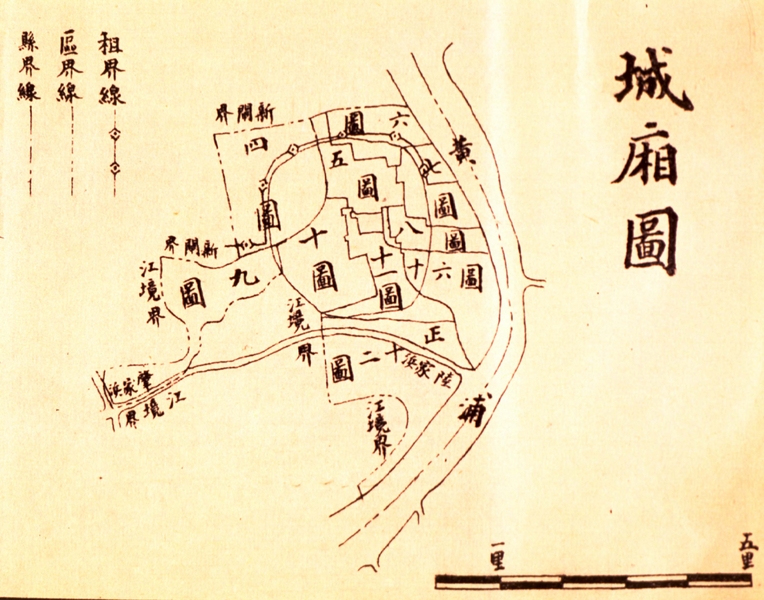 城廂圖
租界線
區界線
縣界線
黃
浦
新閘界
四
圖
六
圖
五
圖
七
圖
八
圖
十
圖
十一
圖
十六
圖
新閘界
九
圖
江境界
江境界
正
十二
圖
陸家浜
肇家浜
江境界
江境界
一里
五里